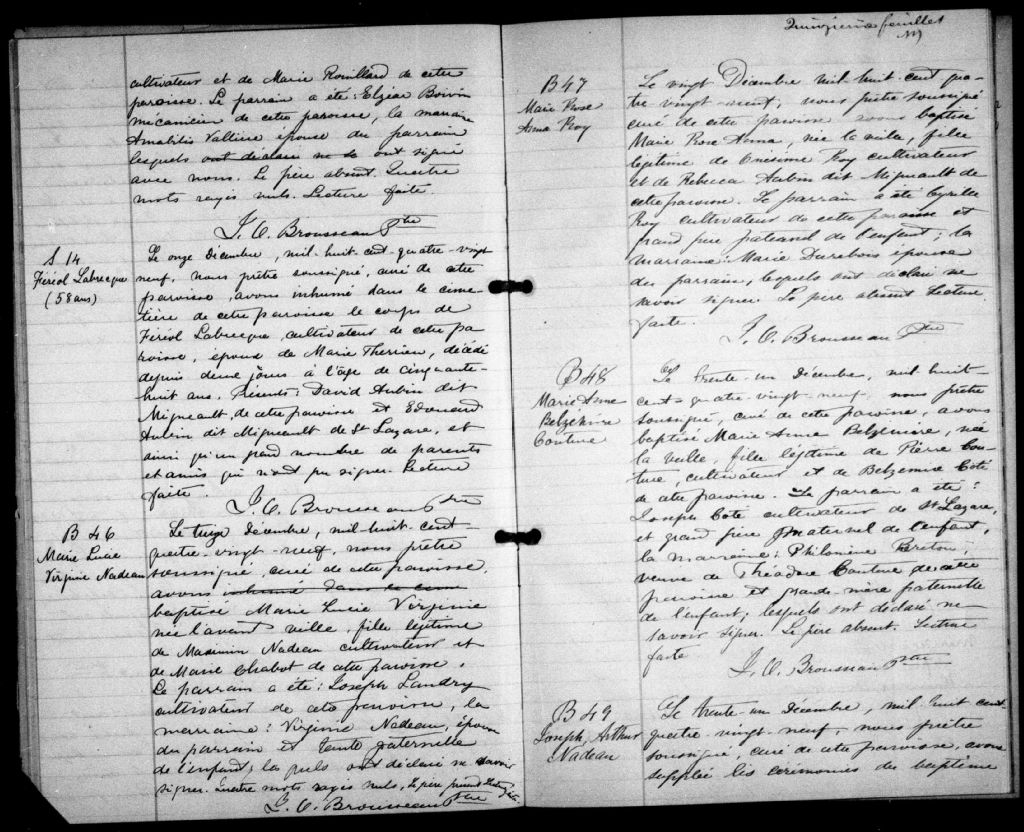 cultivateur et de Marie Rouillard de cette
paroisse. Le parrain a été: Elzéar Boivin
mécanicien de cette paroisse, la marraine
Vallière épouse du parrain
lesquels ont déclaré ne sa ont signé
avec nous. Le père absent. Quatre
mots rayés nuls. Lecture faite
J. O. Brousseau Ptre
S 14
Féréol Labrecque
(58 ans)
Le onze Décembre, mil-huit-cent-quatre-vingt
neuf, nous prêtre soussigné, curé de cette
paroisse, avons inhumé dans le cime-
tière de cette paroisse le corps de
Féréol Labrecque, cultivateur de cette pa
roisse, époux de Marie Therrien, décédé
depuis deux jours à l'âge de cinquante-
huit ans. Présents: David Aubin dit
Migneault, de cette paroisse et Edouard
Aubin dit Migneault de St Lazare, et
ainsi qu'un grand nombre de parents
et amis qui n'ont pu signer. Lecture
faite.
J. O. Brousseau Ptre
B 46
Marie Lucie
Virginie Nadeau
Le treize Décembre, mil-huit-cent-
quatre-vingt-neuf, nous prêtre
soussigné, curé de cette paroisse,
avons inhumé dans le cime
baptisé Marie Lucie Virginie
née l'avant veille, fille légitime
de Maximin Nadeau cultivateur et
de Marie Chabot de cette paroisse.
Le parrain a été: Joseph Landry
cultivateur de cette paroisse, la
marraine: Virginie Nadeau, épouse
du parrain et tante paternelle
de l'enfant, lesquels ont déclaré ne savoir
signer. Quatre mots rayés nuls, Le père présent Lecture faite.
J. O. Brousseau Ptre
Quinzième feuillet
B 47
Marie Rose
Anna Roy
Le vingt Décembre mil-huit-cent qua-
tre-vingt-neuf, nous prêtre soussigné
curé de cette paroisse avons baptisé
Marie Rose Anna, née la veille, fille
légitime de Onésime Roy cultivateur
et de Rebecca Aubin dit Migneault de
cette paroisse. Le parrain a été Cyrille
Roy cultivateur de cette paroisse et
grand père paternel de l'enfant; la
marraine: Marie épouse
du parrain, lesquels ont déclaré ne
savoir signer. Le père absent. Lecture
faite.
J. O. Brousseau Ptre
B 48
Marie Anne
Belzémire
Couture
Le trente-un Décembre, mil huit-
cent-quatre-vingt-neuf, nous prêtre
soussigné, curé de cette paroisse, avons
baptisé Marie Anne Belzémire, née
la veille, fille légitime de Pierre Cou-
ture, cultivateur et de Belzémire Coté
de cette paroisse. Le parrain a été:
Joseph Coté cultivateur de St Lazare,
et grand père maternel de l'enfant,
la marraine: Philomène Breton,
veuve de Théodore Couture de cette
paroisse et grande-mère paternelle
de l'enfant; lesquels ont déclaré ne
savoir signer. Le père absent. Lecture
faite
J. O. Brousseau Ptre
B 49
Joseph Arthur
Nadeau
Le trente-un Décembre, mil-huit cent
quatre-vingt-neuf, nous prêtre
soussigné, curé de cette paroisse, avons
suppléé les cérémonies du baptême